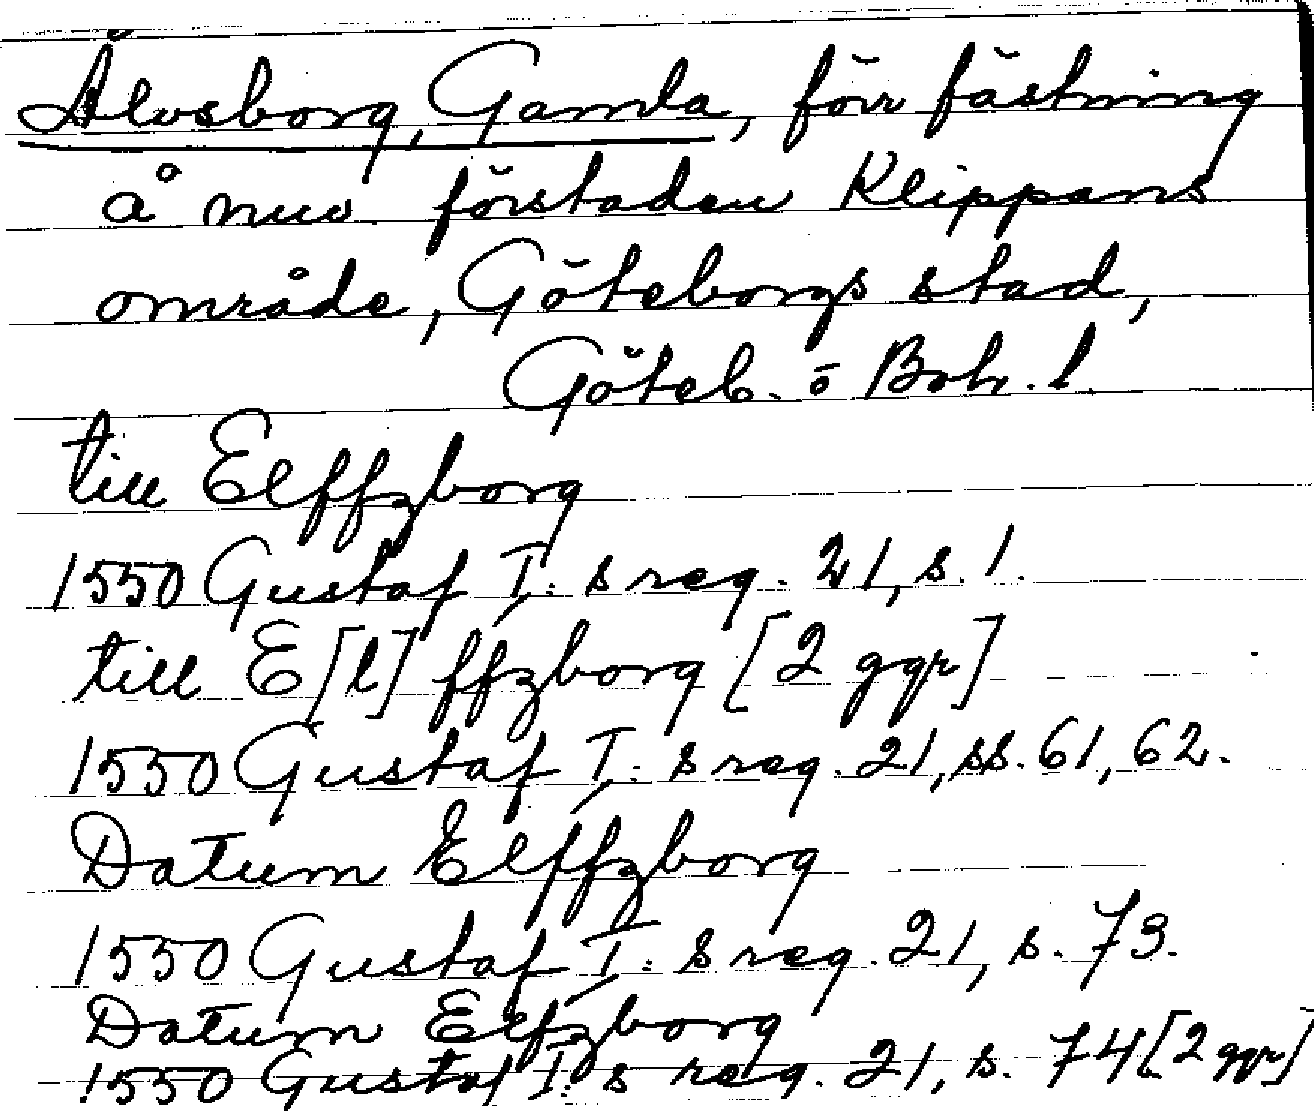 Älvsborg, Gamla, förr fästning
å nuv. förstaden Klippans
område, Göteborgs stad,
Göteb. o Boh. l.
till Elffzborg
1550 Gustaf I: s reg. 21, s. 1.
till E[l]ffzborg [2 ggr]
1550 Gustaf I: s reg. 21, ss. 61, 62.
Datum Elffzborg
1550 Gustaf I: s reg. 21, s. 73.
Datum Elfzborg
1550 Gustaf I: s reg. 21, s. 74 [2 ggr]